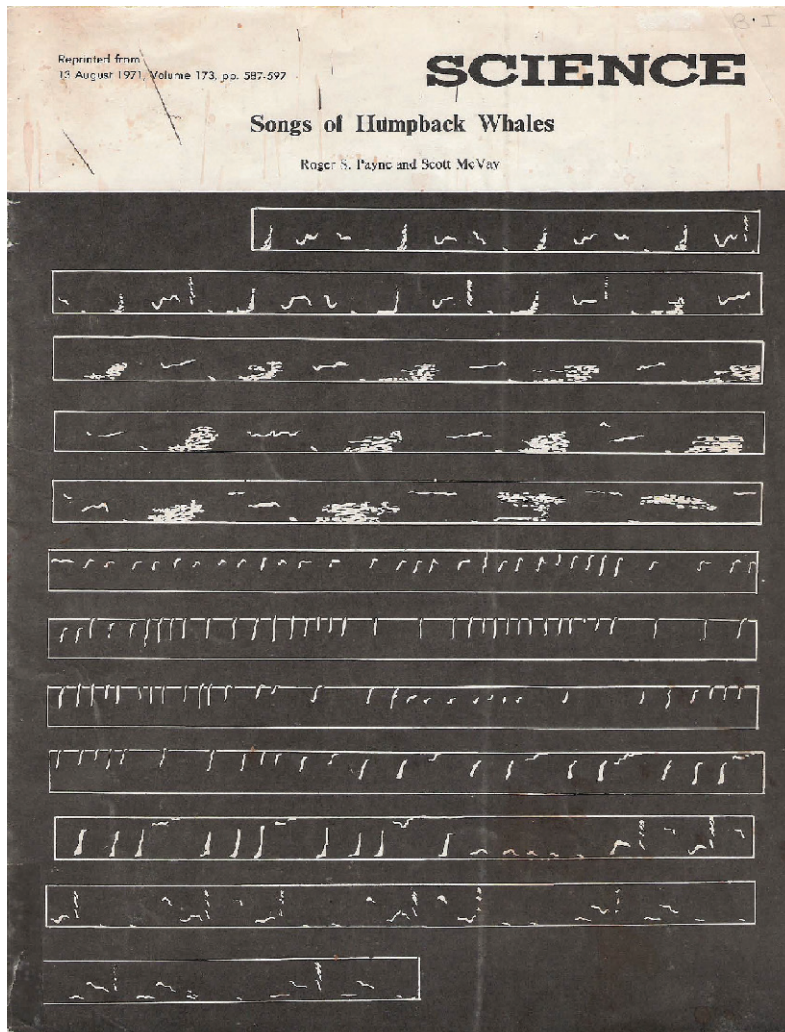 B·I
Reprinted from
13 August 1971, Volume 173, pp. 587-597
SCIENCE
Songs of Humpback Whales
Roger S. Payne and Scott McVay